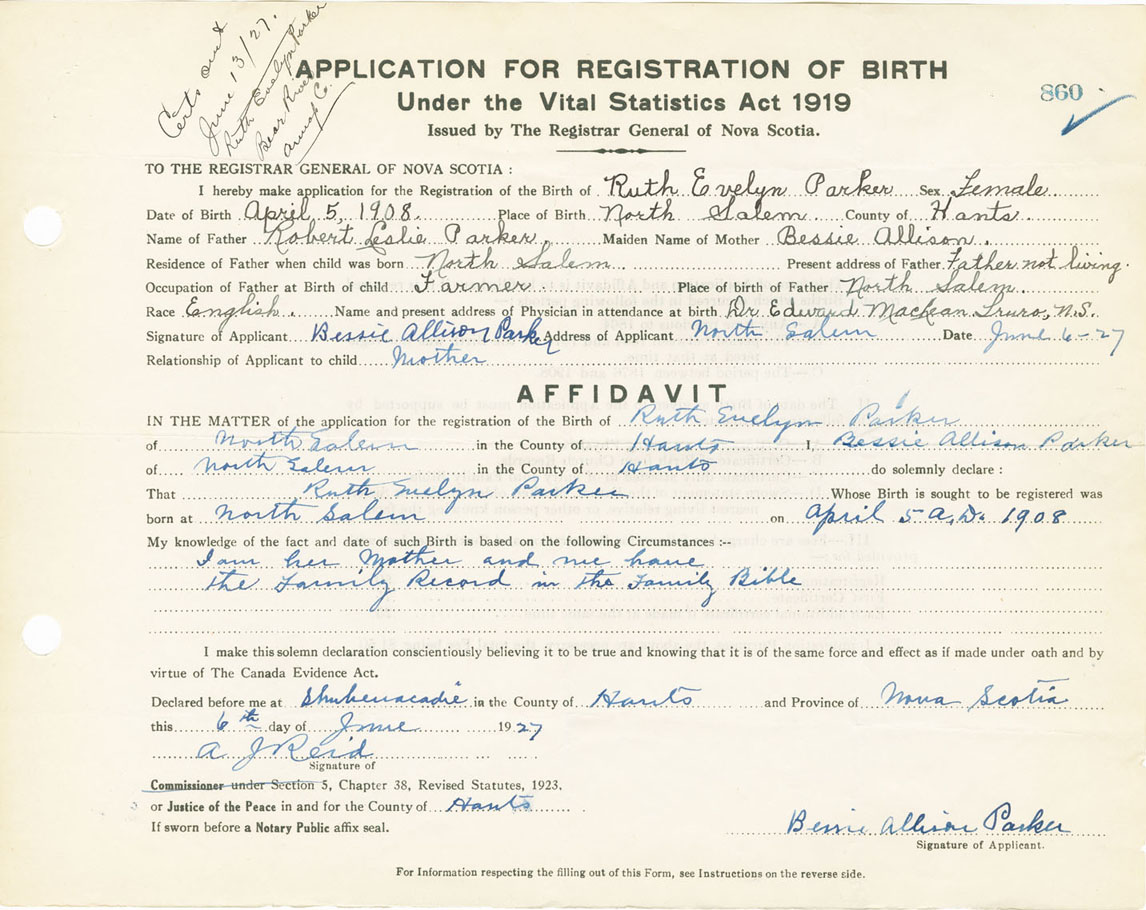 Certs out
June 13/27.
Ruth Evelyn Parker
Bear River
Annap Co.
APPLICATION FOR REGISTRATION OF BIRTH
Under the Vital Statistics Act 1919
860
Issued by The Registrar General of Nova Scotia.
TO THE REGISTRAR GENERAL OF NOVA SCOTIA :
I hereby make application for the Registration of the Birth of Ruth Evelyn Parker Sex Female
Date of Birth April 5, 1908. Place of Birth North Salem County of Hants
Name of Father Robert Leslie Parker, Maiden Name of Mother Bessie Allison.
Residence of Father when child was born North Salem Present address of Father Father not living.
Occupation of Father at Birth of child Farmer Place of birth of Father North Salem
Race English. Name and present address of Physician in attendance at birth Dr. Edward MacLean Truro, N.S.
Signature of Applicant Bessie Allison Parker Address of Applicant North Salem Date June 6-27
Relationship of Applicant to child Mother
AFFIDAVIT
IN THE MATTER of the application for the registration of the Birth of Ruth Evelyn Parker
of North Salem in the County of Hants I Bessie Allison Parker
of North Salem in the County of Hants do solemnly declare :
That Ruth Evelyn Parker Whose Birth is sought to be registered was
born at North Salem on April 5 A.D. 1908
My knowledge of the fact and date of such Birth is based on the following Circumstances :--
I am her Mother and we have
the Family Record in the Family Bible
I make this solemn declaration conscientiously believing it to be true and knowing that it is of the same force and effect as if made under oath and by
virtue of The Canada Evidence Act.
Declared before me at Shubenacadie in the County of Hants and Province of Nova Scotia
this 6th day of June 1927
A J Reid
Signature of
Commissioner under Section 5, Chapter 38, Revised Statutes, 1923,
or Justice of the Peace in and for the County of Hants
If sworn before a Notary Public affix seal.
Bessie Allison Parker
Signature of Applicant.
For Information respecting the filling out of this Form, see Instructions on the reverse side.